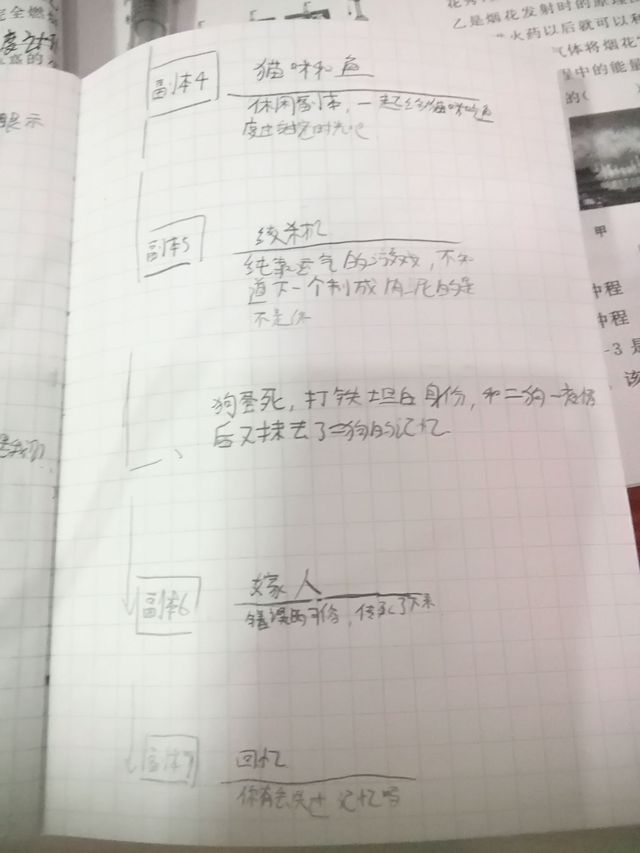 全燃
花
乙是烟花发射时的原理
火药以后就可以利
气体将烟花
程中的能量
的(
副本4
猫咪和鱼
休闲副本，一起给猫咪喂鱼
度过时光吧
眼示
副本5
绞杀机
纯靠运气的游戏，不知
道下一个制成肉泥的是
不是你
甲
中程
中程
-3 是
该
狗蛋死，打铁坦白身份，和二狗一夜情
后又抹去了二狗的记忆
副本6
嫁人
错误的习俗，传承了下来
副本7
回忆
你有丢失过记忆吗